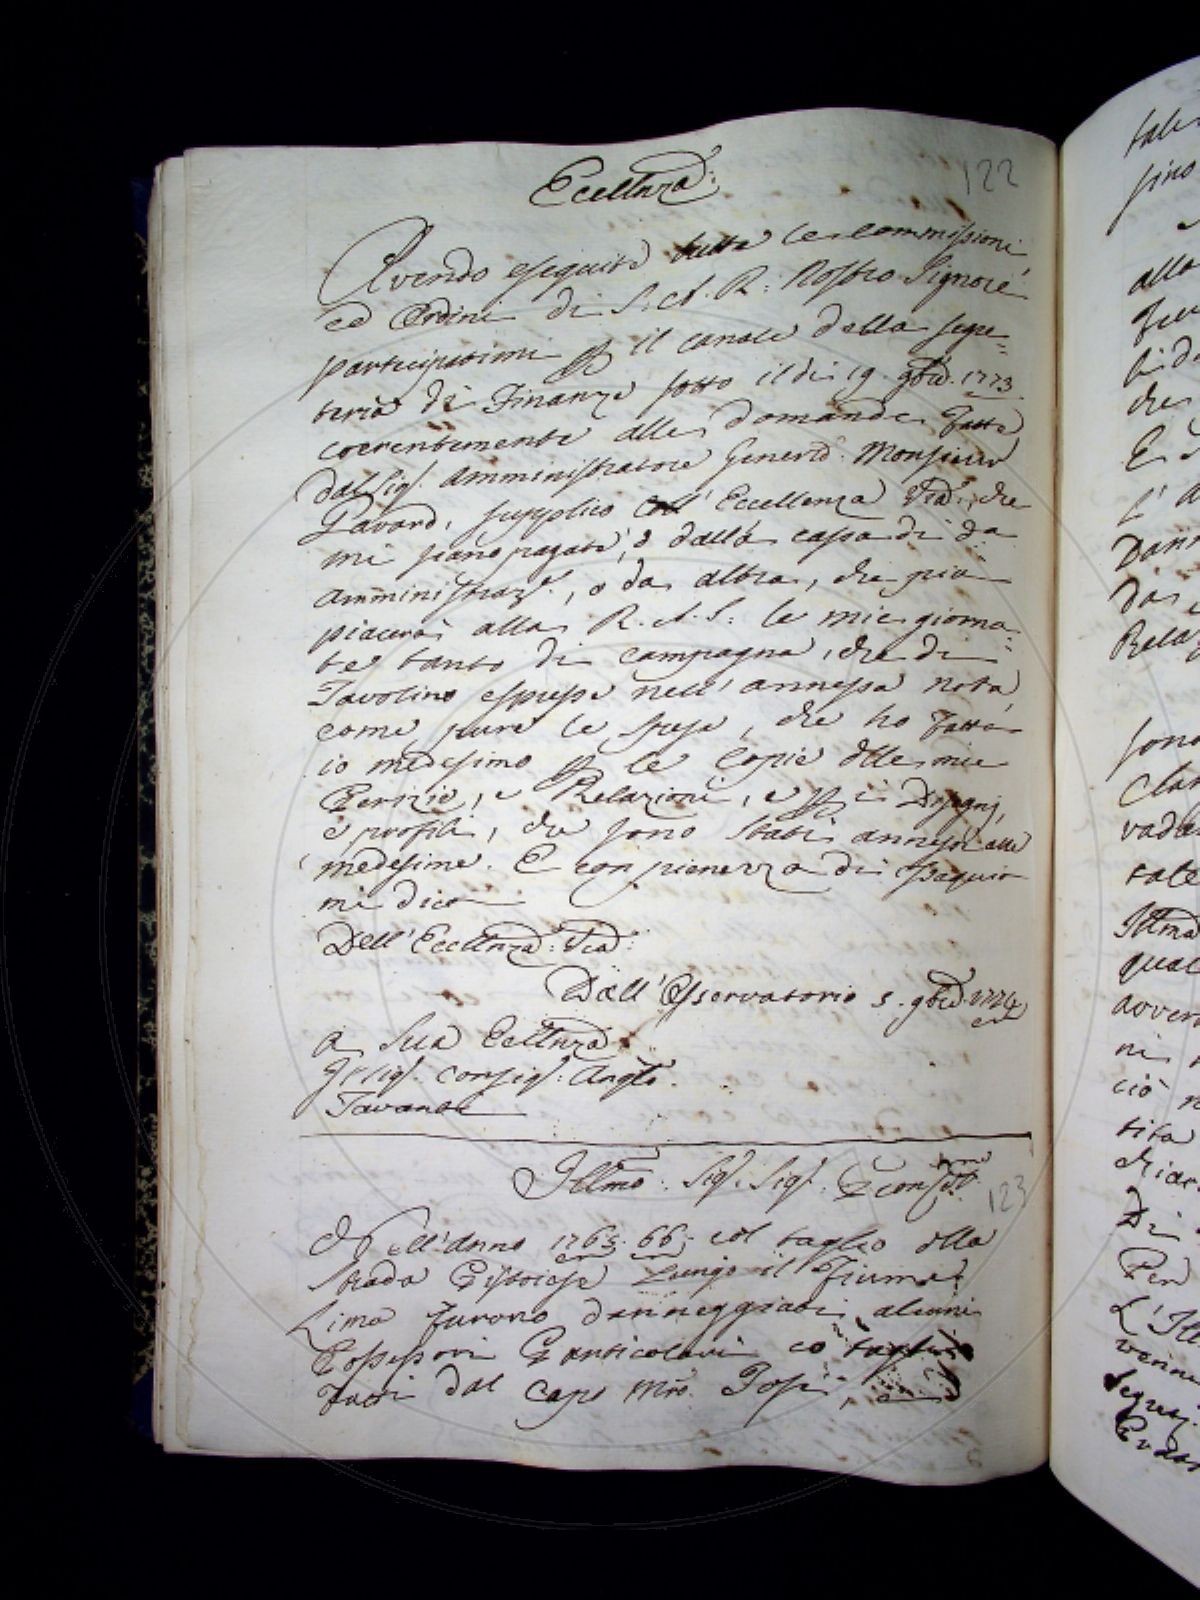 Eccellnza:
122
Avendo eseguite tutte le commissioni,
ed Ordini di S. A. R: Nostro Signore
participatimi p il canale della segre=
teria di Finanze sotto il di 19. 9bre. 1773.
coerentemente alle domande fatte
dal Sig. Amministratore Generle. Monsieur
Gavard, supplico all' Eccellenza Vra., che
mi siano pagate, o dalla cassa di da
Amministraz., o da altra, che piu
piacerà alla R. A. S: le mie giorna=
te tanto di campagna, che di
Tavolino espresse nell' annessa nota,
come pure le spese, che ho fatto
io medesimo p le Copie dlle mie
Perizie, e Relazioni, e p i Disegni,
e profili, che sono stati annessi alle
medesime. E con pienezza di ossequio
mi dico
Dell' Eccellnza: Vra:
Dall' Osservatorio 5. 9bre 1774
A Sua Ecellnza
Il Sig. Consig. Anglo.
Tavanti
Illmo: Sig. Sig. Pron Colmo
123
Nell' Anno 1765. 66. col taglio dlla
strada Pistoiese Lungo il Fiume
Lima furono danneggiati alcuni
Possessori Particolari co
fatti dal Capo Mro. Tosi,
tale
sino
alla
che
E
L'
Dann
Da
Rela
sono
vada
tale
Illmo
qual
avver
ni
ciò
tita
chiar
Di
Per
L' Ill
venne